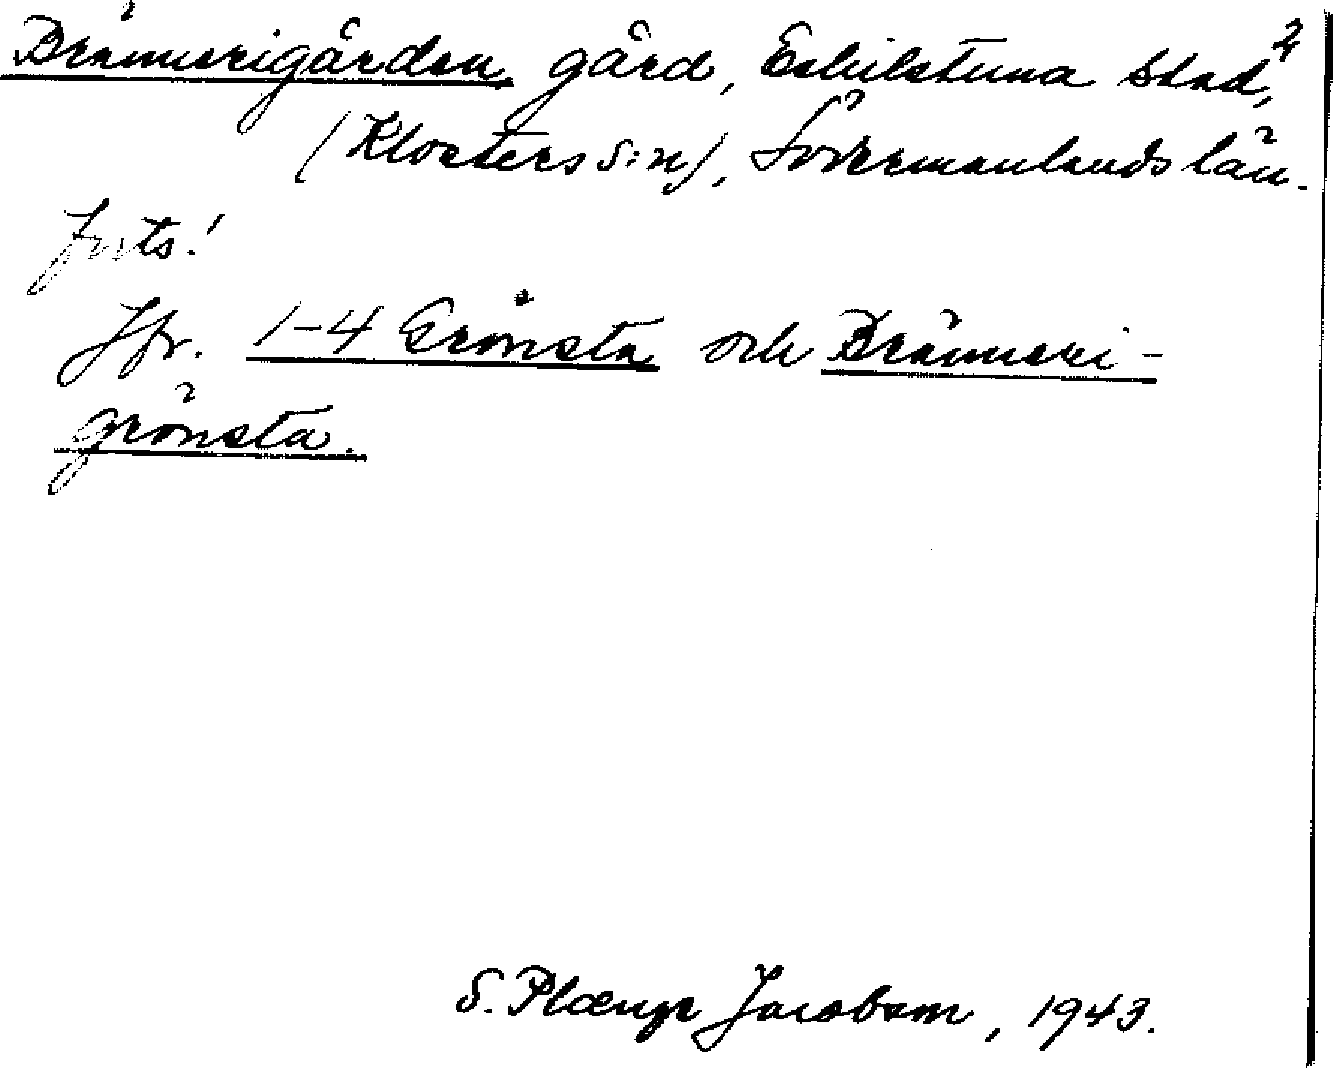 Brännerigården, gård, Eskilstuna stad,
(Klosters s:n), Södermanlands län.
forts!
Jfr. 1–4 Grönsta och Bränneri-
grönsta.
S. Jacobson, 1943.